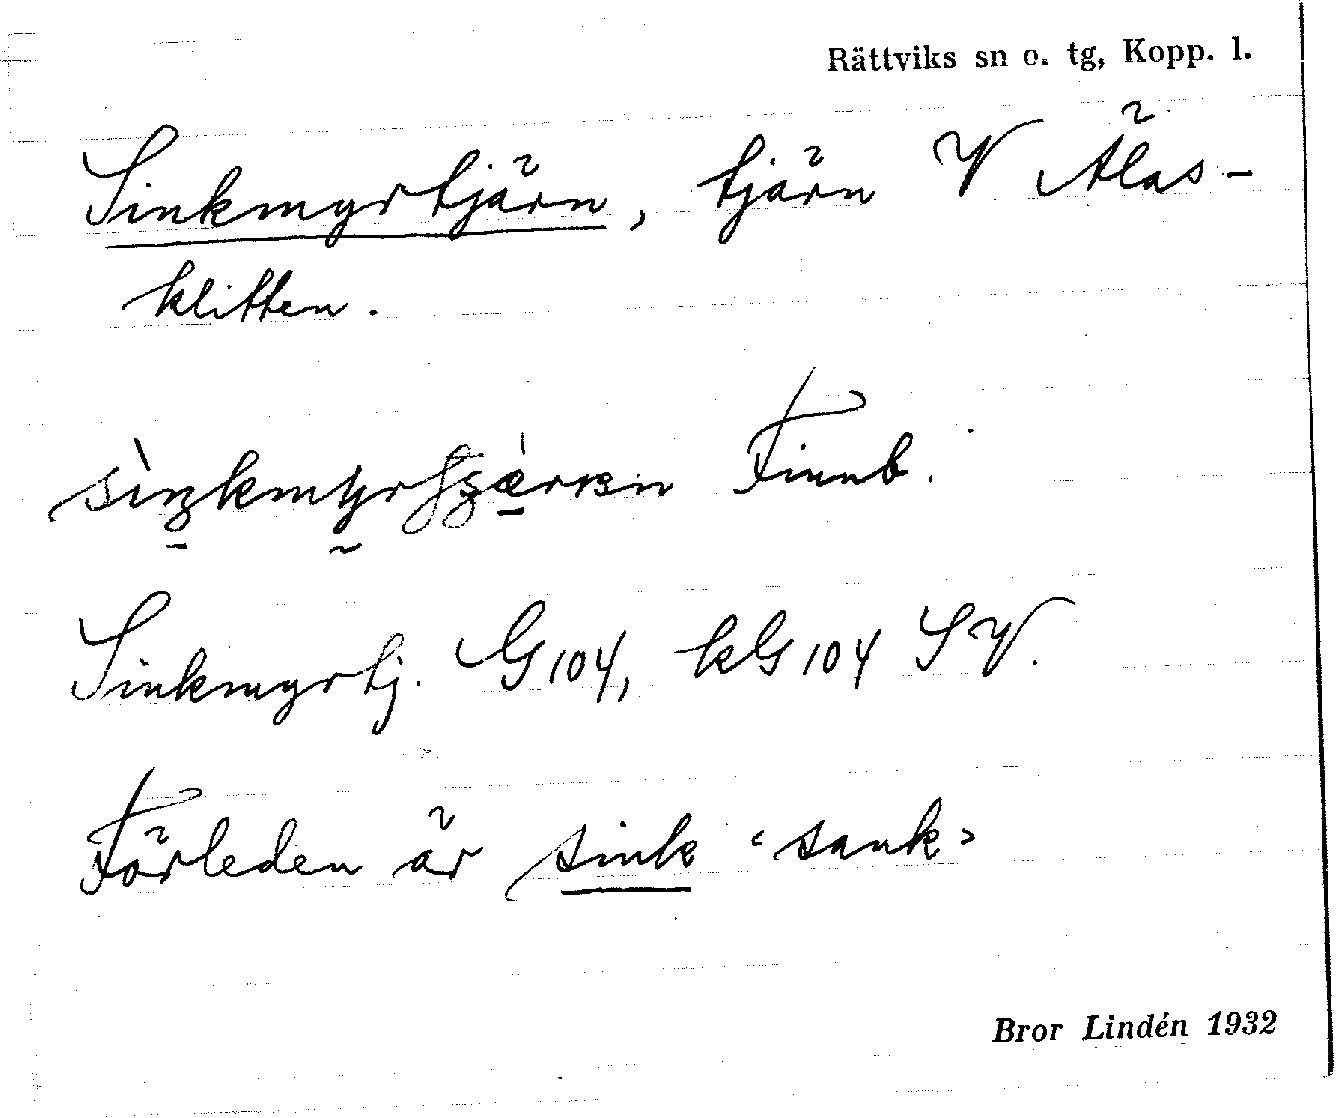 Rättviks sn o. tg, Kopp. l.
Sinkmyrtjärn, tjärn V Älas-
klitten.
Finnb.
Sinkmyrtj. G104, kG104 SV.
Förleden är sink ‹sank›
Bror Lindén 1932